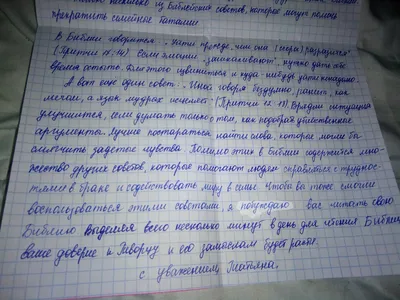 несколько из библейских советов, которое могут помочь
прекратить семейные баталии.
В Библии говорится: „Уйти прежде, чем она (ссора) разразится"
(Притчи 17:14). Если эмоции „зашкаливают", нужно дать им
время остыть. Для этого извиниться и куда-нибудь уйти ненадолго.
А вот еще один совет: „Иной говорит бездумно, ранит, как
мечом, а язык мудрых исцеляет" (Притчи 12:18). Вряд ли ситуация
улучшится, если думать только о том, как подобрать убийственные
аргументы. Лучше постараться найти слова, которые могли бы
смягчить задетые чувства. Помимо этих в Библии содержится мно-
жество других советов, которые помогают людям справляться с трудно-
стями в браке и содействовать миру в семье. Чтобы вы тоже смогли
воспользоваться этими советами, я побуждаю вас читать свою
Библию. Выделяя всего несколько минут в день для чтения Библии,
ваше доверие к Творцу и его замыслам будет расти.
С уважением, Татьяна.